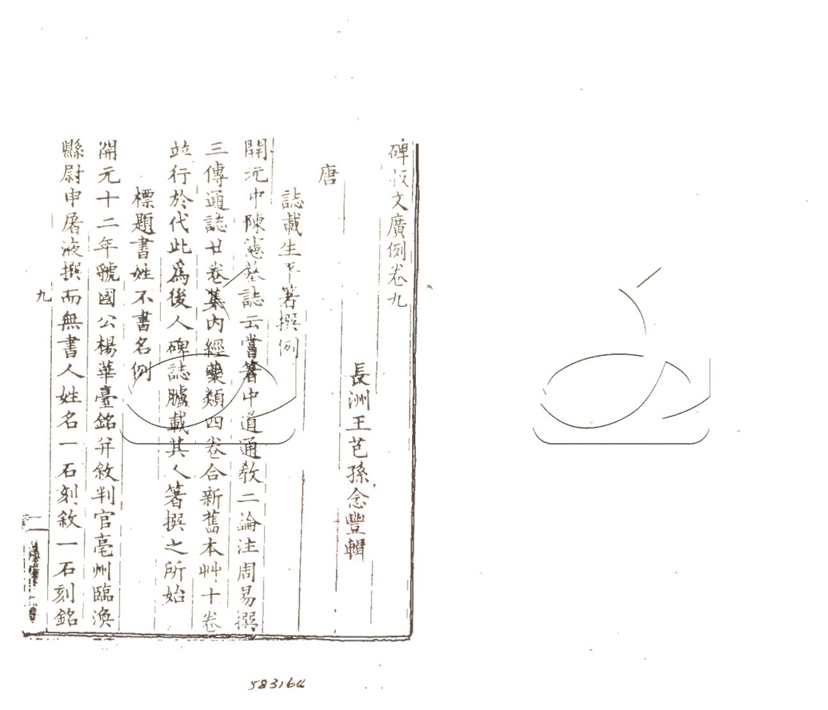 碑版文廣例卷九
長洲王芑孫念豐輯
唐
誌載生平著撰例
開元中陳憲墓誌云嘗著中道通教二論注周易撰
三傳通誌廿卷集內經藥類四卷合新舊本艸十卷
竝行於代此爲後人碑誌臚載其人著撰之所始
標題書姓不書名例
開元十二年虢國公楊華臺銘幷敘判官亳州臨渙
縣尉申屠液撰而無書人姓名一石刻敘一石刻銘
九
583164